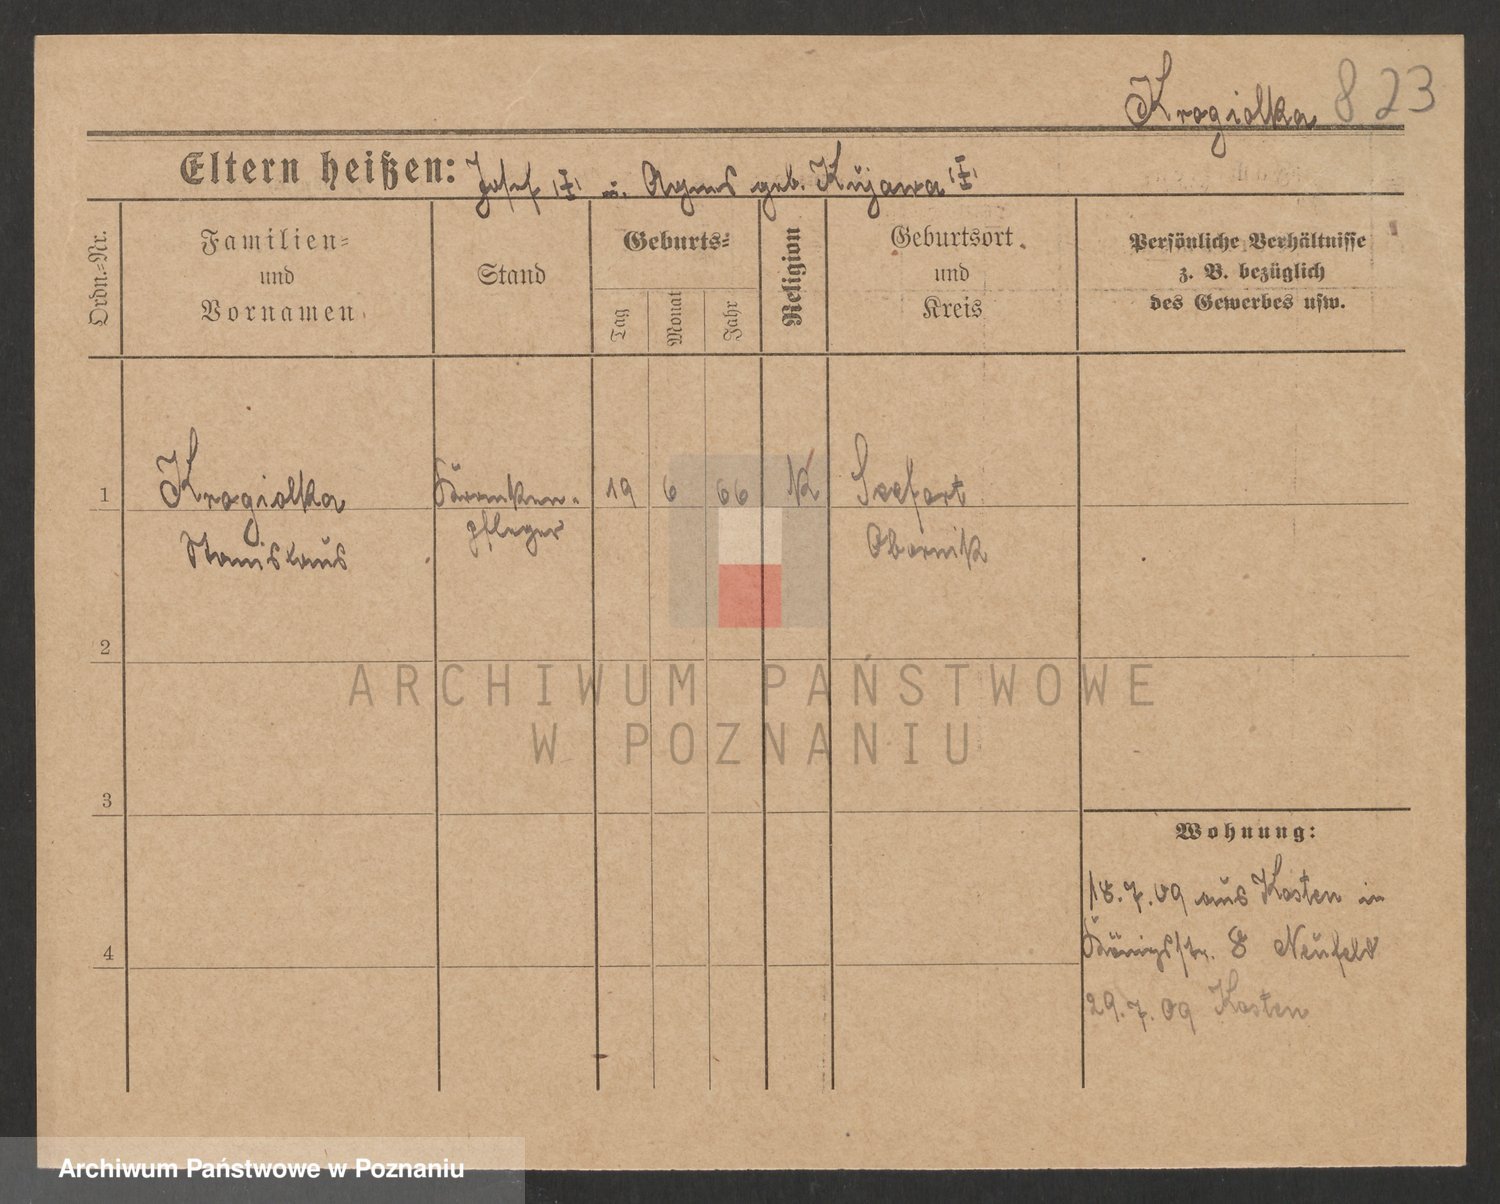 Krogiolka 823
Eltern heißen: Josef u. Agnes geb. Kujawa
Ordn.-Nr.
Familien-
und
Vornamen
Stand
Geburts-
Tag
Monat
Jahr
Religion
Geburtsort
und
Kreis
Persönliche Verhältnisse
z. B. bezüglich
des Gewerbes usw.
1 Krogiolka Kranken- 19 6 66 K
Stanislaus pfleger Obornik
2
3
4
Wohnung:
18.7.09 aus Kosten in
Königstr. 8 Neufeld
29.7.09 Kosten
ARCHIWUM PAŃSTWOWE
W POZNANIU
Archiwum Państwowe w Poznaniu